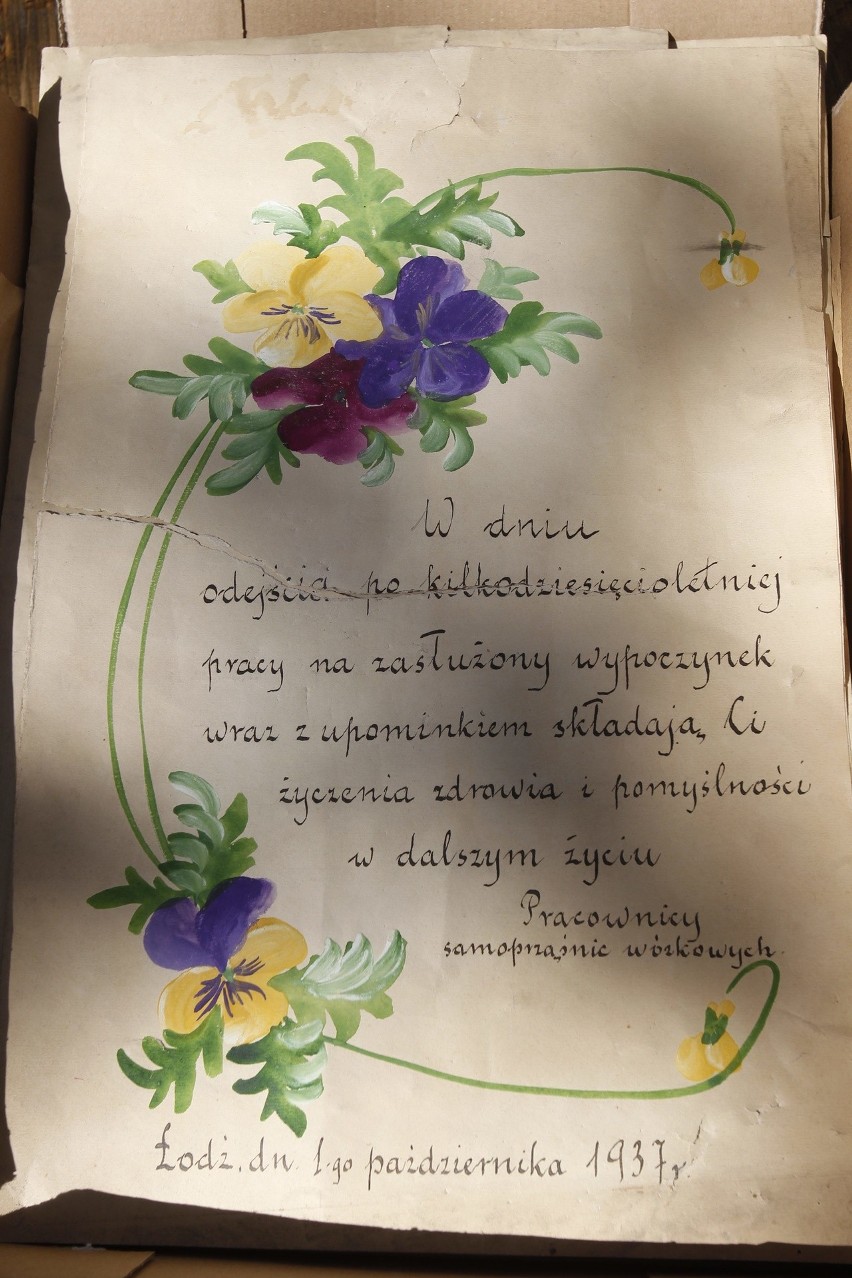 W dniu
odejścia po kilkodziesięcioletniej
pracy na zasłużony wypoczynek
wraz z upominkiem składają Ci
życzenia zdrowia i pomyślności
w dalszym życiu
Pracownicy
samoprząśnic wózkowych.
Łodź, dn. 1-go października 1937 r.